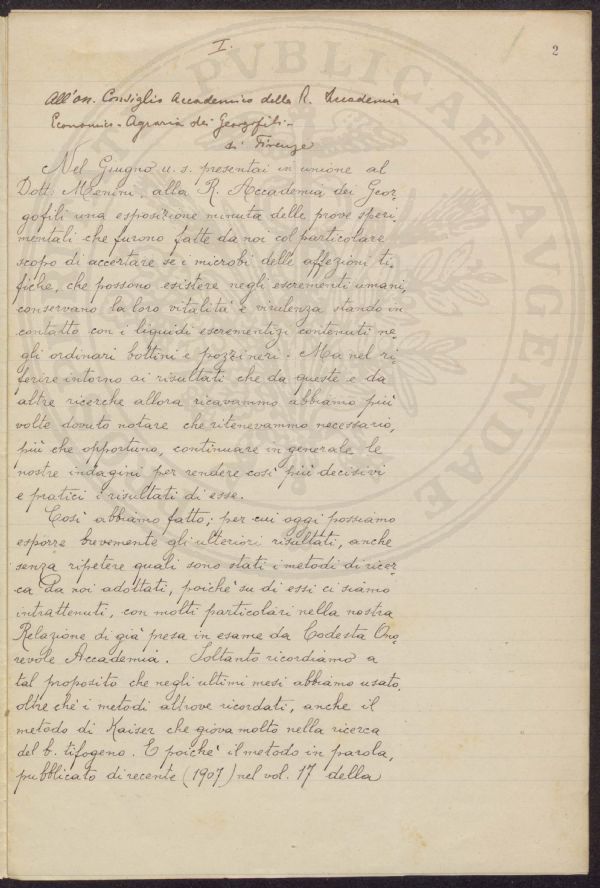 I.
2
All'on. Consiglio Accademico della R. Accademia
Economico-Agraria dei Georgofili-
di Firenze
Nel Giugno u. s. presentai in unione al
Dott. Menini, alla R. Accademia dei Geor-
gofili una esposizione minuta delle prove speri-
mentali che furono fatte da noi col particolare
scopo di accertare se i microbi delle affezioni ti-
fiche, che possono esistere negli escrementi umani,
conservano la loro vitalità e virulenza stando in
contatto con i liquidi escrementizi contenuti ne-
gli ordinari bottini e pozzi neri. Ma nel ri-
ferire intorno ai risultati che da queste e da
altre ricerche allora ricavammo abbiamo più
volte dovuto notare che ritenevammo necessario,
più che opportuno, continuare in generale le
nostre indagini per rendere così più decisivi
e pratici i risultati di esse.
Così abbiamo fatto, per cui oggi possiamo
esporre brevemente gli ulteriori risultati, anche
senza ripetere quali sono stati i metodi di ricer-
ca da noi adottati, poichè su di essi ci siamo
intrattenuti, con molti particolari nella nostra
Relazione di già presa in esame da Codesta Ono-
revole Accademia. Soltanto ricordiamo a
tal proposito che negli ultimi mesi abbiamo usato,
oltre chè i metodi altrove ricordati, anche il
metodo di Kaiser che giova molto nella ricerca
del b. tifogeno. E poichè il metodo in parola,
pubblicato di recente (1907) nel vol. 17 della
PVBLICAE
AVGENDAE